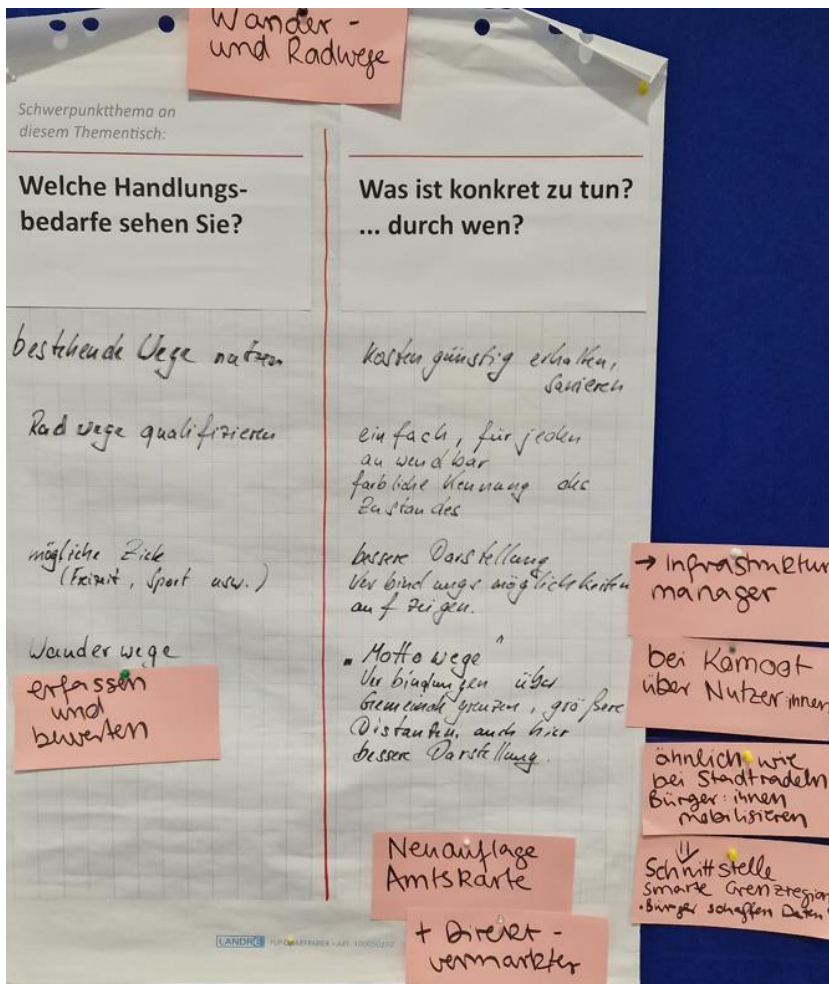 Wander-
und Radwege
Schwerpunktthema an
diesem Thementisch:
Welche Handlungs-
bedarfe sehen Sie?
bestehende Wege nutzen
Radwege qualifizieren
mögliche Ziele
(Freizeit, Sport usw.)
Wanderwege
erfassen
und
bewerten
Was ist konkret zu tun?
... durch wen?
kostengünstig erhalten,
sanieren
einfach, für jeden
anwendbar
farbliche Kennung des
Zustandes
bessere Darstellung
Verbindungsmöglichkeiten
aufzeigen.
"Mottowege"
Verbindungen über
Gemeindegrenzen, größere
Distanzen, auch hier
bessere Darstellung.
→ Infrastruktur
manager
bei Komoot
über Nutzer:innen
ähnlich wie
bei Stadtradeln
Bürger:innen
mobilisieren
⇓
Schnittstelle
Smarte Grenzregion
"Bürger schaffen Daten"
Neuauflage
Amtskarte
+ Direkt-
vermarkter
LANDRÉ